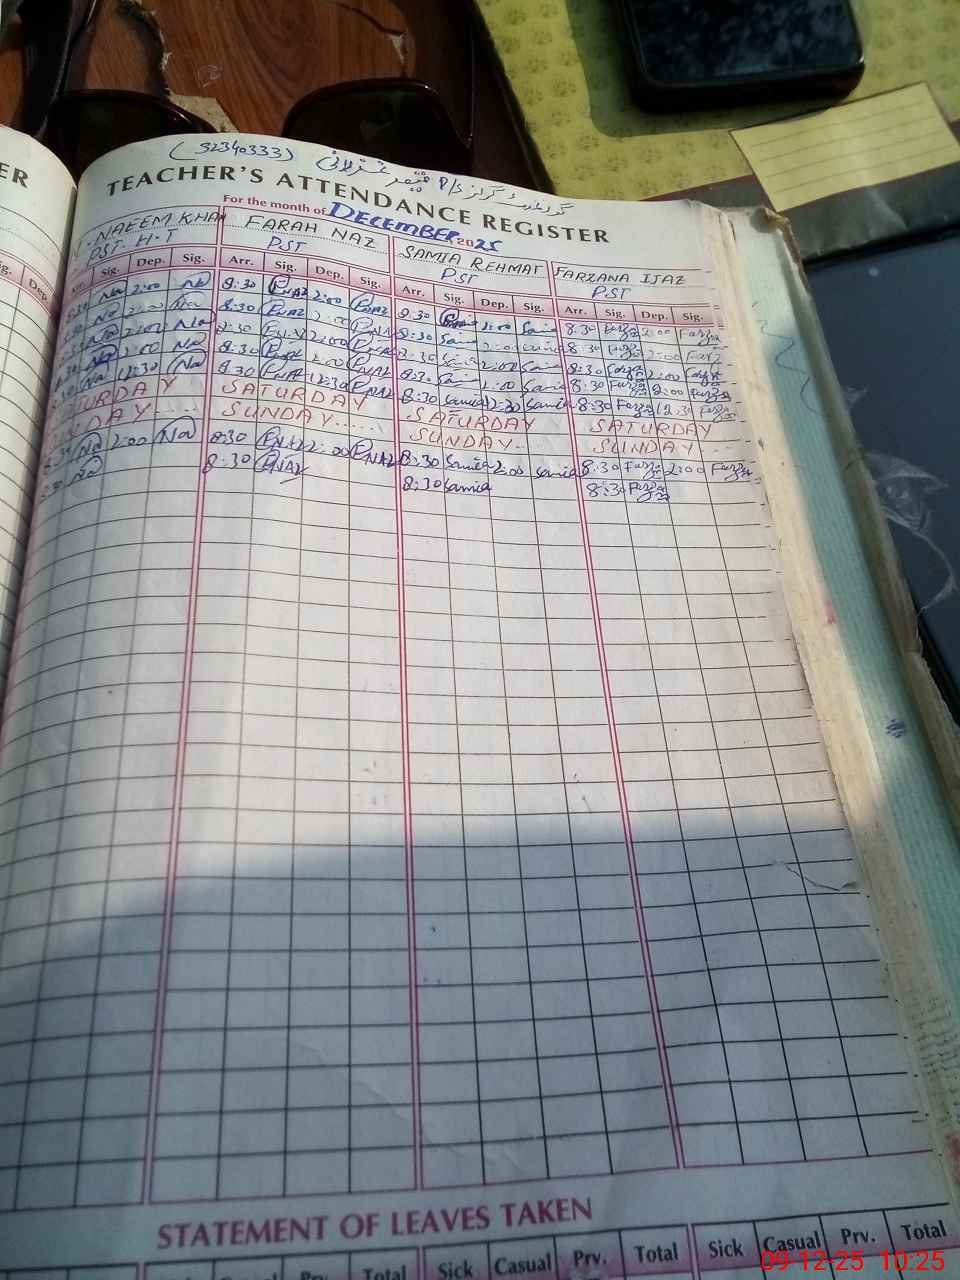 (32340333) گورنمنٹ گرلز P/S قیصر غزلانی
ER
TEACHER'S ATTENDANCE REGISTER
For the month of DECEMBER 2025
NAEEM KHAN FARAH NAZ SAMIA REHMAT FARZANA IJAZ
PST-H-T PST PST PST
Sig. Dep. Arr. Sig. Dep. Sig. Arr. Sig. Dep. Sig. Arr. Sig. Dep. Sig. Arr. Sig. Dep. Sig.
8:30 Na 2:00 Na 8:30 FNAZ 2:00 FNAZ 8:30 Samia 2:00 Samia 8:30 Farza 2:00 Farza
8:30 Na 2:00 Na 8:30 FNAZ 2:00 FNAZ 8:30 Samia 2:00 Samia 8:30 Farza 2:00 Farza
8:30 Na 2:00 Na 8:30 FNAZ 2:00 FNAZ 8:30 Samia 2:00 Samia 8:30 Farza 2:00 Farza
8:30 Na 2:00 Na 8:30 FNAZ 2:00 FNAZ 8:30 Samia 2:00 Samia 8:30 Farza 2:00 Farza
8:30 Na 12:30 Na 8:30 FNAZ 12:30 FNAZ 8:30 Samia 12:30 Samia 8:30 Farza 12:30 Farza
SATURDAY SATURDAY SATURDAY
SUNDAY..... SUNDAY.. SUNDAY
8:30 Na 2:00 Na 8:30 FNAZ 2:00 FNAZ 8:30 Samia 2:00 Samia 8:30 Farza 2:00 Farza
8:30 Na 8:30 FNAZ 8:30 Samia 8:30 Farza
STATEMENT OF LEAVES TAKEN
Prv. Total Sick Casual Prv. Total Sick Casual Prv. Total
09-12-25 10:25